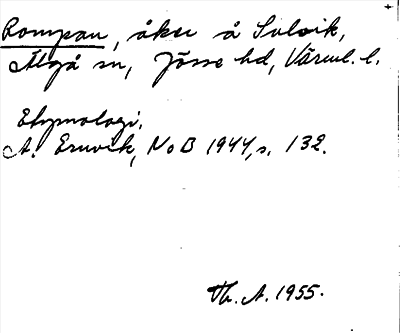 Rompan, åker å Sulvik,
Älgå sn, Jösse hd, Värml. l.
Etymologi.
A. Ernvik, NoB 1944, s. 132.
Th. A. 1955.